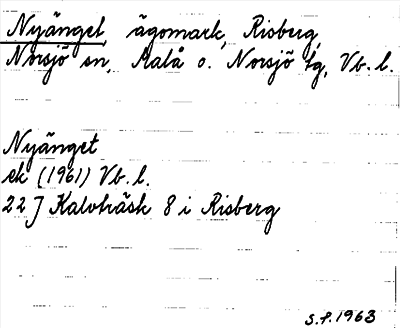 Nyänget, ägomark, Risberg,
Norsjö sn, Malå o. Norsjö tg, Vb. l.
Nyänget
ek (1961) Vb. l.
22 J Kalvträsk 8 i Risberg
S.P. 1963